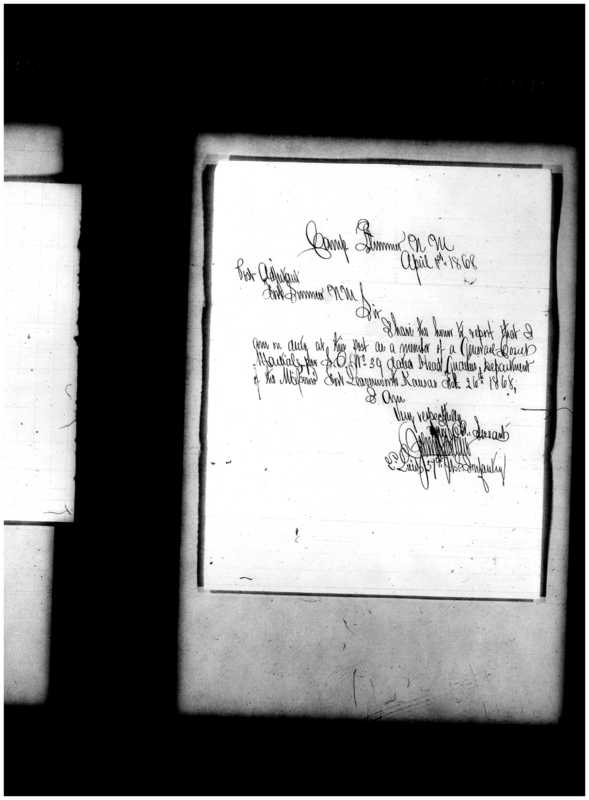 Camp Sumner N M
April 1st 1868
Post Adjutant
Fort Sumner N M
Sir
I have the honor to report that I
am on duty at this Post as a member of a General Court
Martial, per S.O. No 39 dated Head Quarters, Department
of the Missouri Fort Leavenworth Kansas Feb. 26th 1868,
I Am
Very respectfully
Servant
37th U.S. Infantry